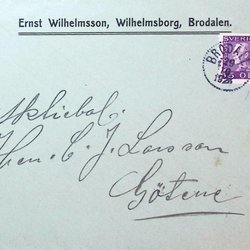 Ernst Wilhelmsson, Wilhelmsborg, Brodalen.
SVERIGE
BRODA
15 ÖRE
C. J. Larsson
Götene